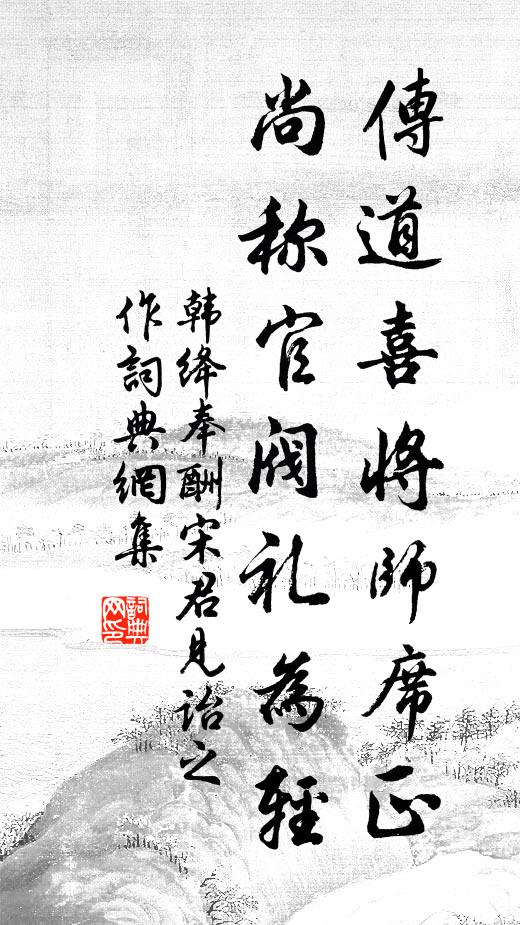 傳道喜將師席正
尚称官閥礼為輕
韩绛奉酬宋君見詒之
作詞典網集
詞典
网印